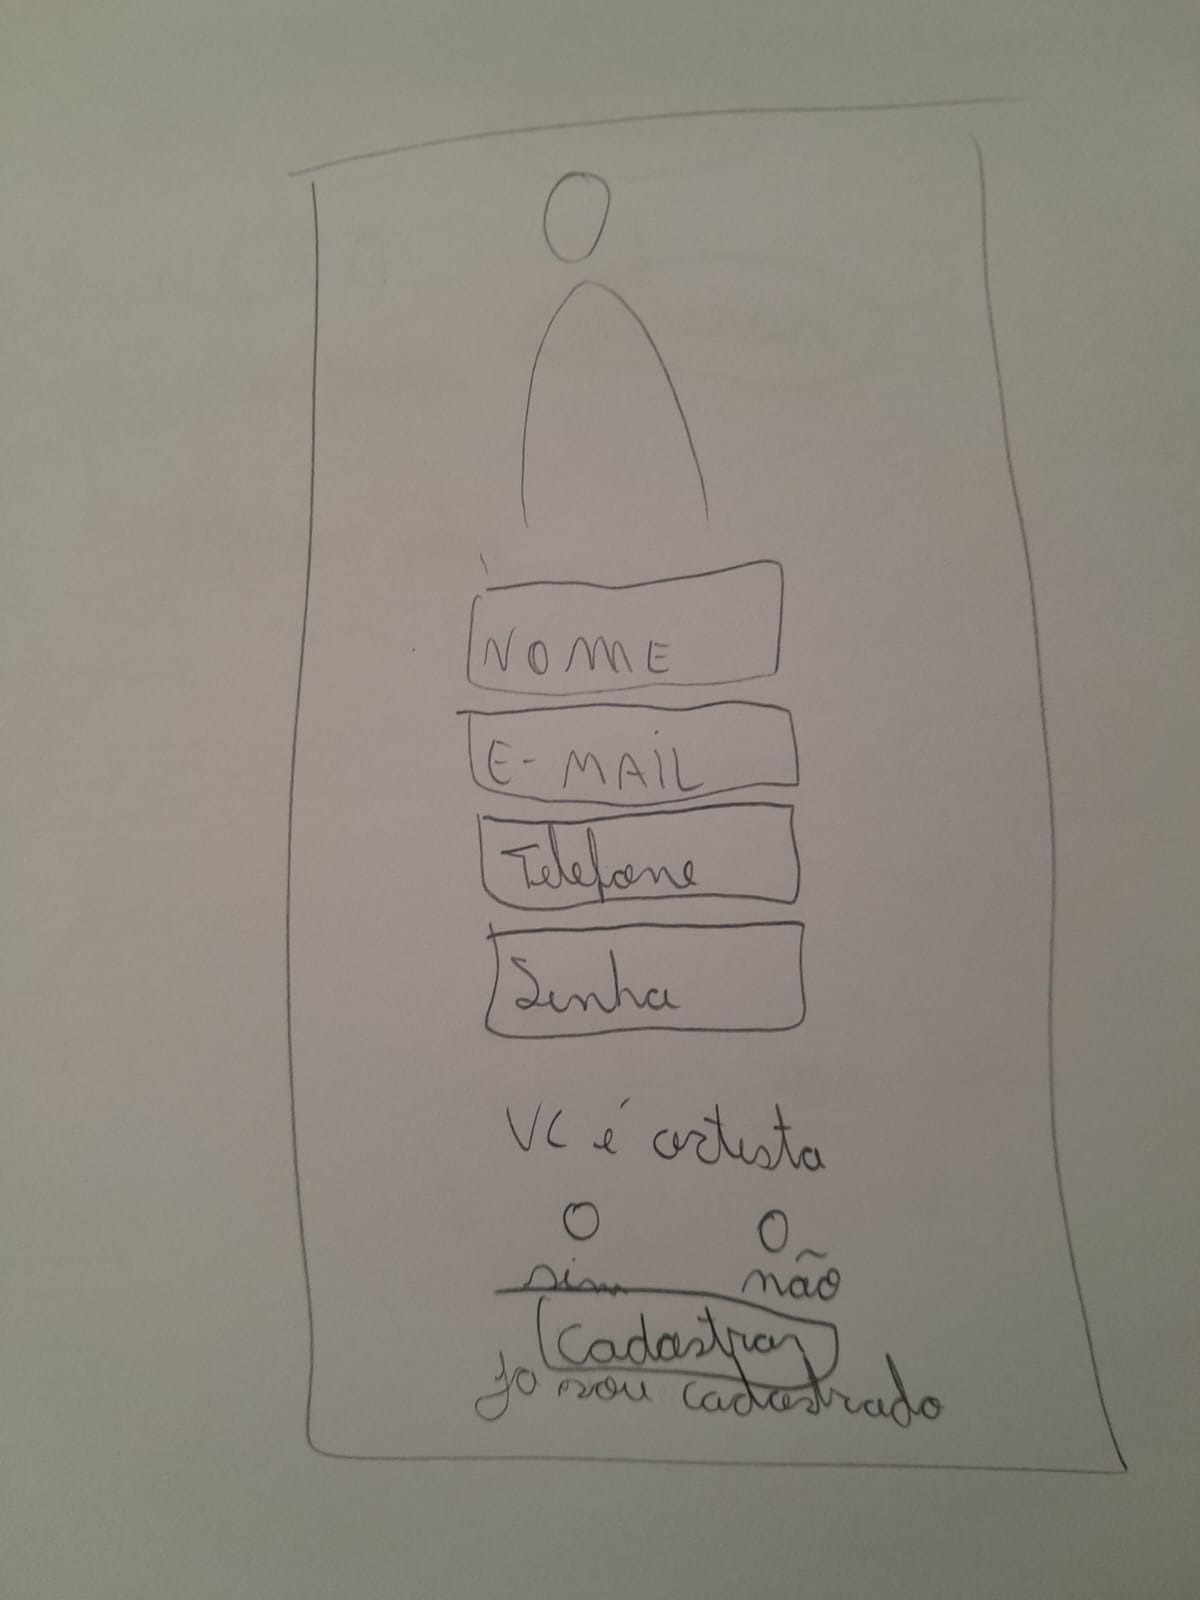 NOME
E-MAIL
Telefone
Senha
VC é artista
sim não
Cadastrar
Ja sou cadastrado